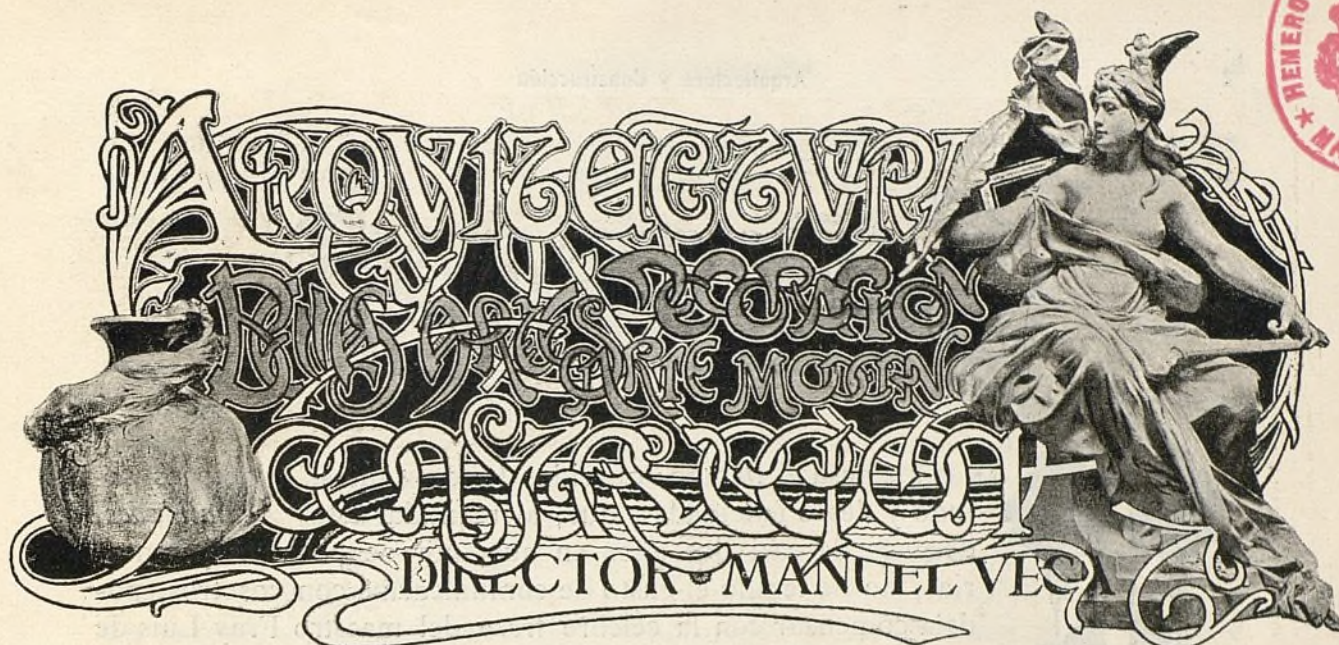 ARQVITECTVRA
BELLAS ARTES DECORACION
ARTE MODERNO
CONSTRVCCIÓN
DIRECTOR MANUEL VEGA
HEMERO